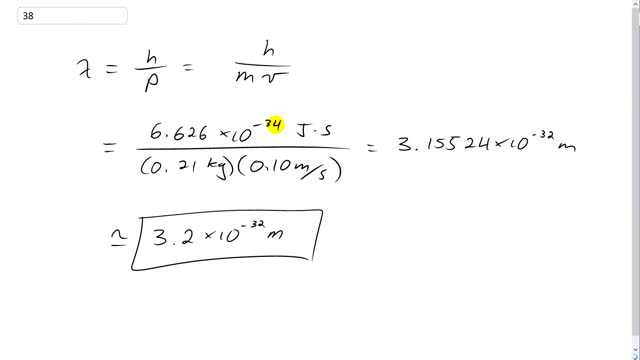 38
λ = h/p = h/(m v)
= 6.626 × 10^-34 J·s / (0.21 kg)(0.10 m/s) = 3.15524 × 10^-32 m
≃ 3.2 × 10^-32 m